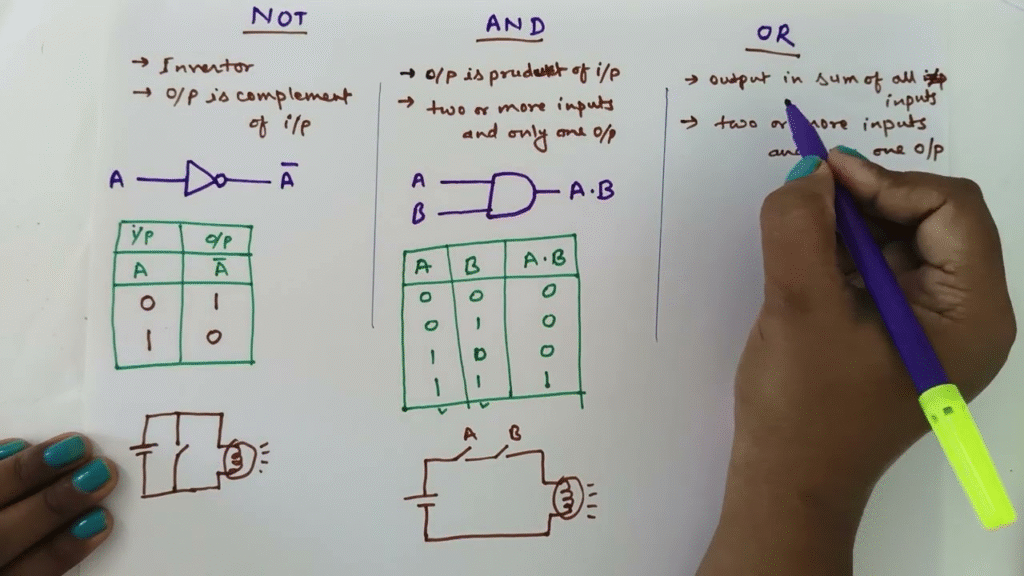 NOT
→ Invertor
→ O/P is complement
of i/p
A
A̅
i/p O/P
A A̅
0 1
1 0
AND
→ O/P is product of i/p
→ two or more inputs
and only one O/p
A
B
A·B
A B A·B
0 0 0
0 1 0
1 0 0
1 1 1
A B
OR
→ output in sum of all
inputs
→ two or more inputs
one O/p